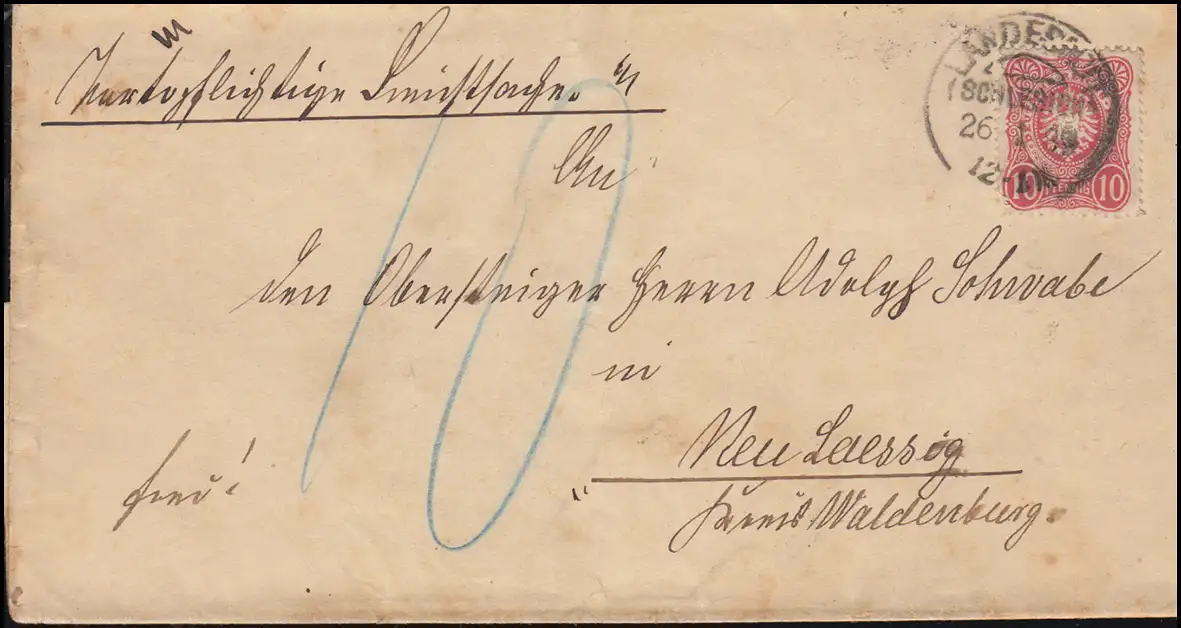 Portopflichtige Dienstsache.
LANDESHUT
(SCHLESIEN)
26
12-1N
10 PFENNIG 10
An
den Obersteiger Herrn Adolph Schwabe
in
Neu Laessig
Kreis Waldenburg.
frei!
10